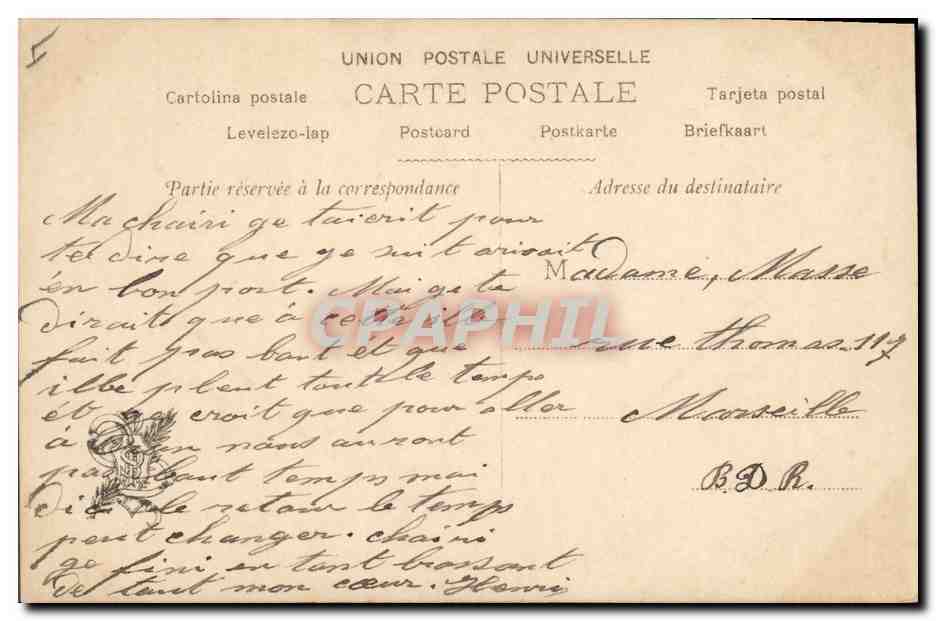 UNION POSTALE UNIVERSELLE
CARTE POSTALE
Cartolina postale Tarjeta postal
Levelezo-lap Postcard Postkarte Briefkaart
Partie réservée à la correspondance
Adresse du destinataire
Ma chairi ge taicrit pour
te dire que ge suit arivait
én bon port. Mai ge te
dirait que à cette ille
fait pas baut ét que
ille pleut tout le temps
ét ge croit que pour aller
à nous auront
pas baut temps mai
d'ici le retour le temps
peut changer. chairi
ge fini en tant brassant
de tout mon cœur. Henri
Madame, Masse
rue thomas. 117
Marseille
B. D. R.
CPAPHIL